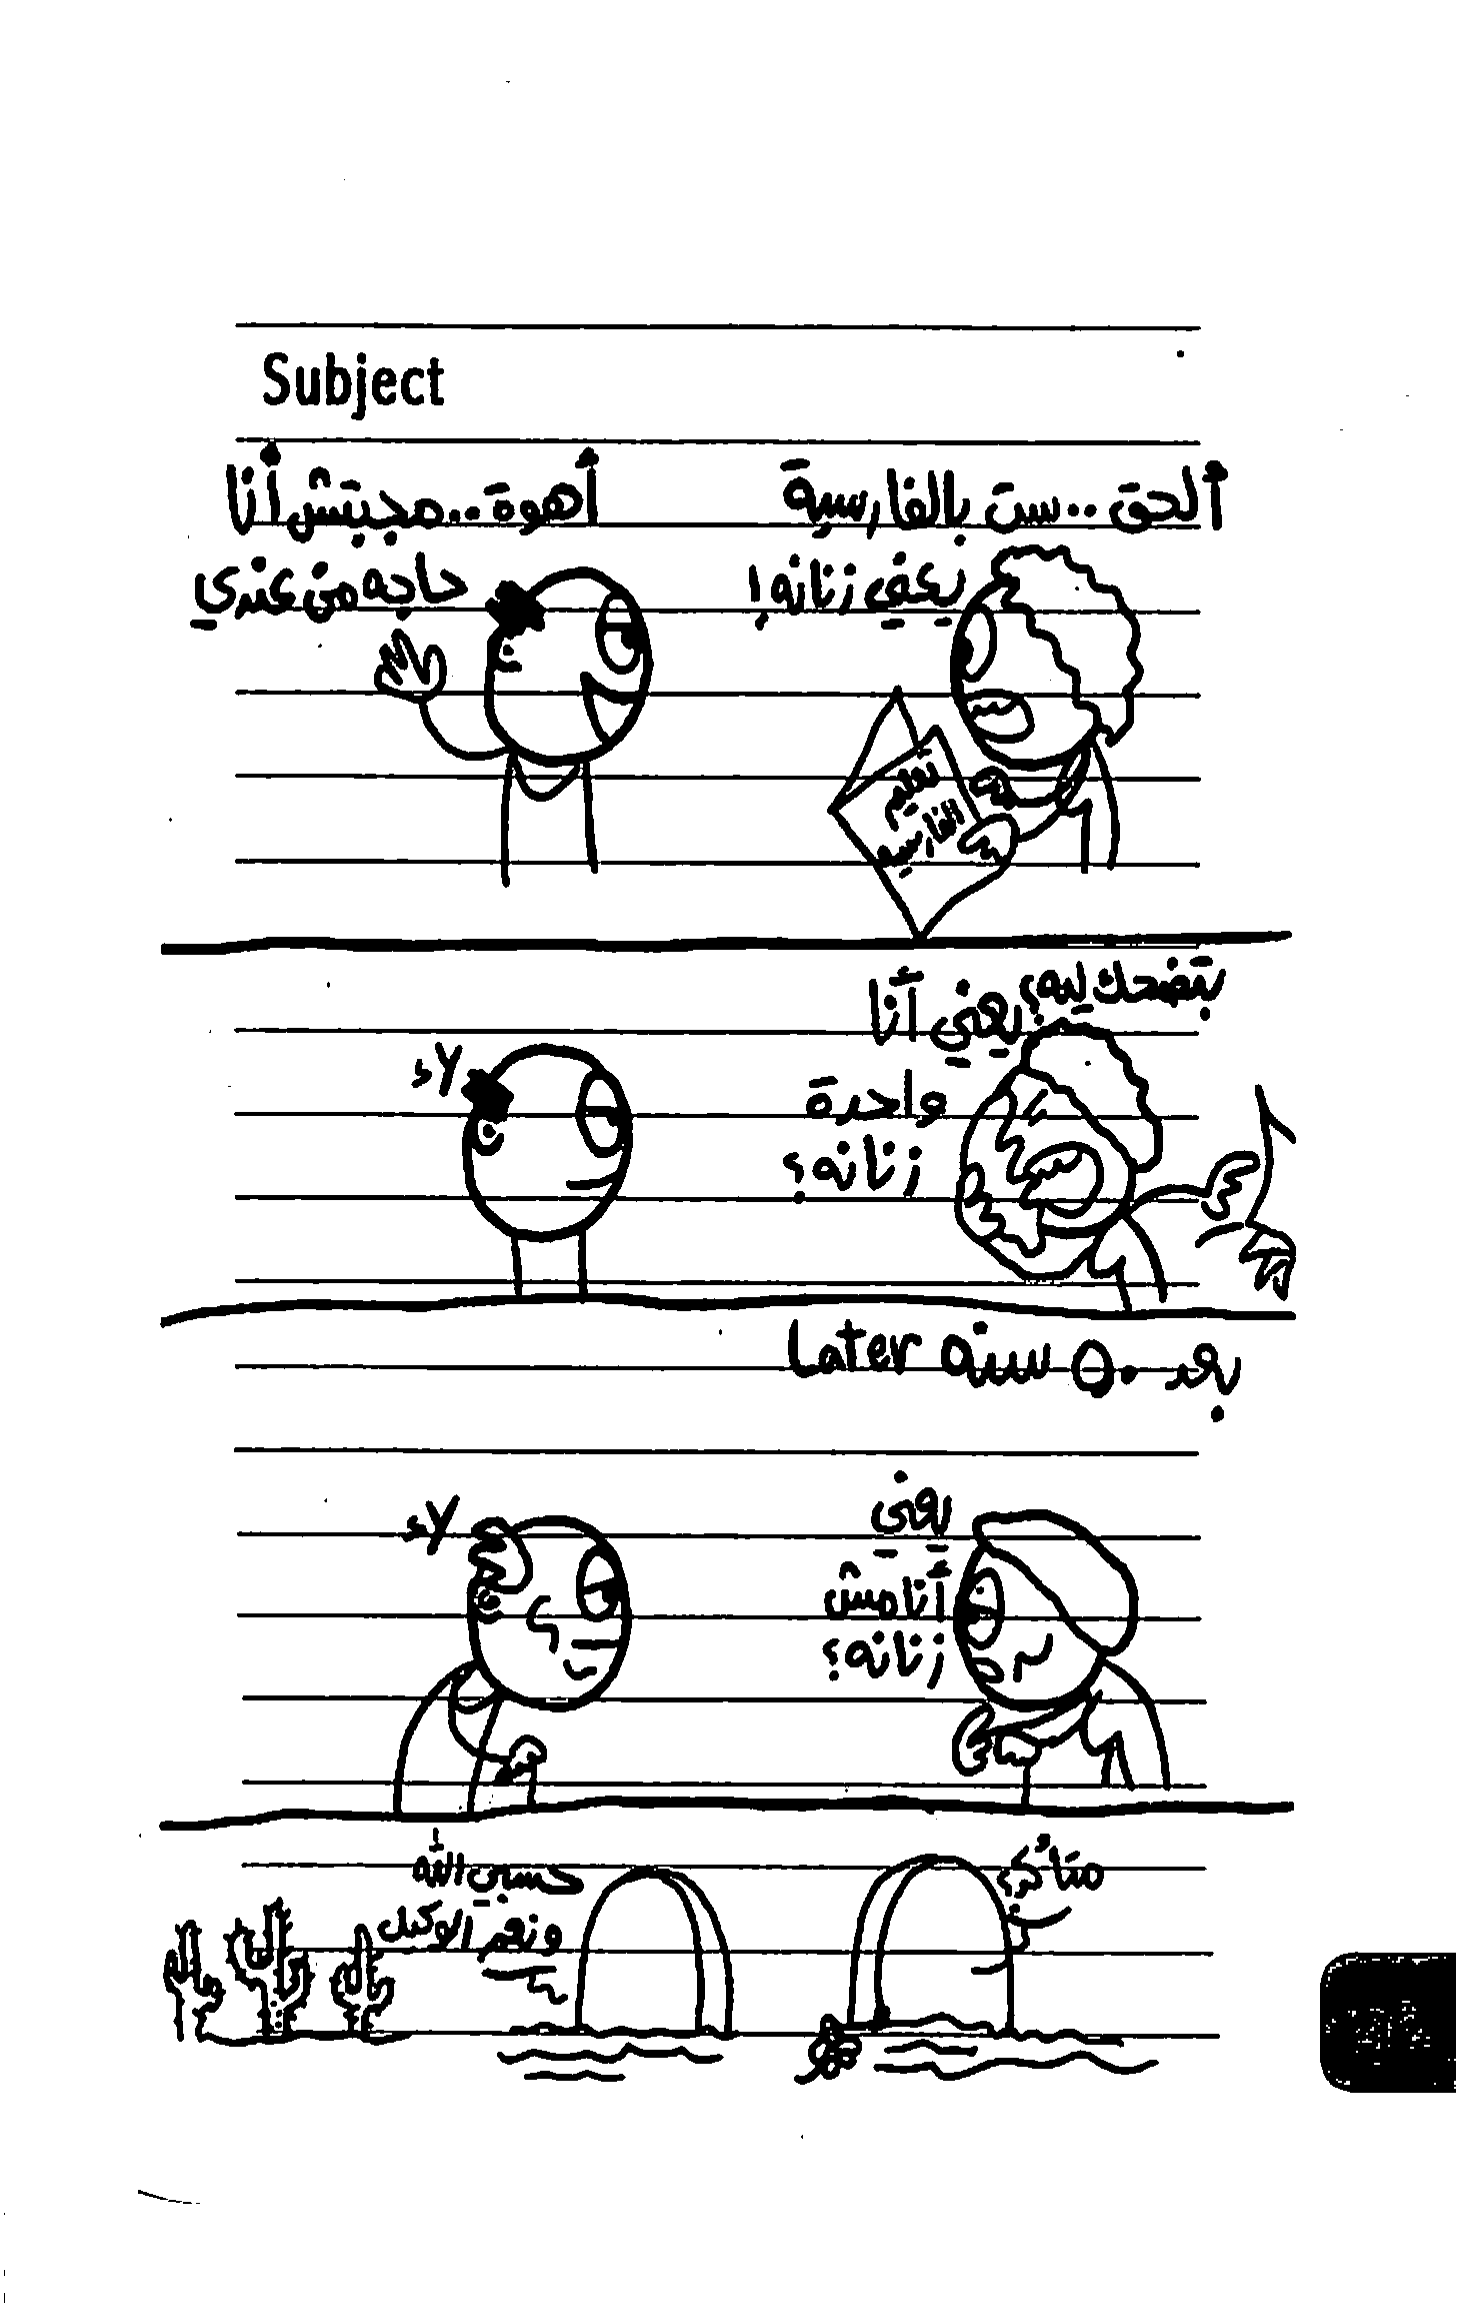 Subject
ألحق.. ست بالفارسية
يعني زنانه!
أهوة.. مجبتش أنا
حاجه من عندي
تعليم
الفارسيه
بتضحك ليه؟ يعني أنا
واحدة
زنانه؟
لاء
بعد ٥٠ سنه Later
يعني
أنا مش
زنانه؟
لاء
متأكد؟
حسبي الله
ونعم الوكيل